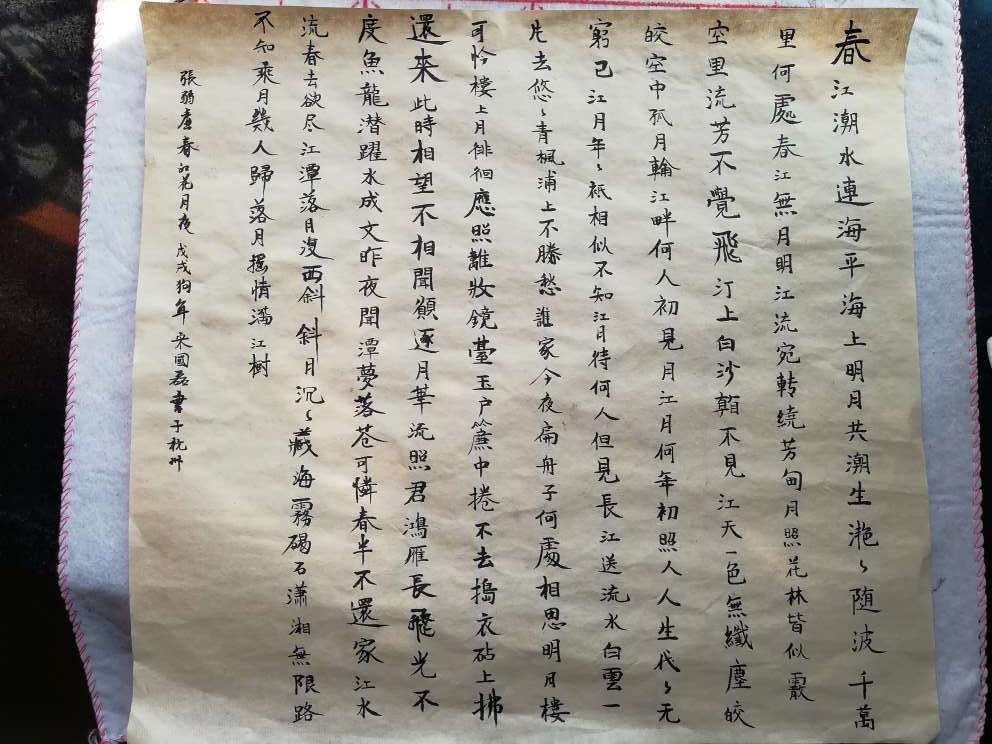 春江潮水連海平海上明月共潮生滟〻随波千萬
里何處春江無月明江流宛転繞芳甸月照花林皆似霰
空里流芳不覺飛汀上白沙顡不見江天一色無纖塵皎
皎空中孤月輪江畔何人初見月江月何年初照人人生代〻无
窮已江月年〻祇相似不知江月待何人但見長江送流水白雲一
片去悠〻青楓浦上不勝愁誰家今夜扁舟子何處相思明月樓
可怜樓上月徘徊應照離妝鏡臺玉户簾中捲不去搗衣砧上拂
還來此時相望不相聞願逐月華流照君鴻雁長飛光不
度魚龍潜躍水成文昨夜聞潭夢落花可憐春半不還家江水
流春去欲尽江潭落月復西斜斜月沉〻藏海霧碣石潇湘無限路
不知乘月幾人歸落月搖情滿江樹
張弱虛春江花月夜戊戌狗年宋國磊書于杭州